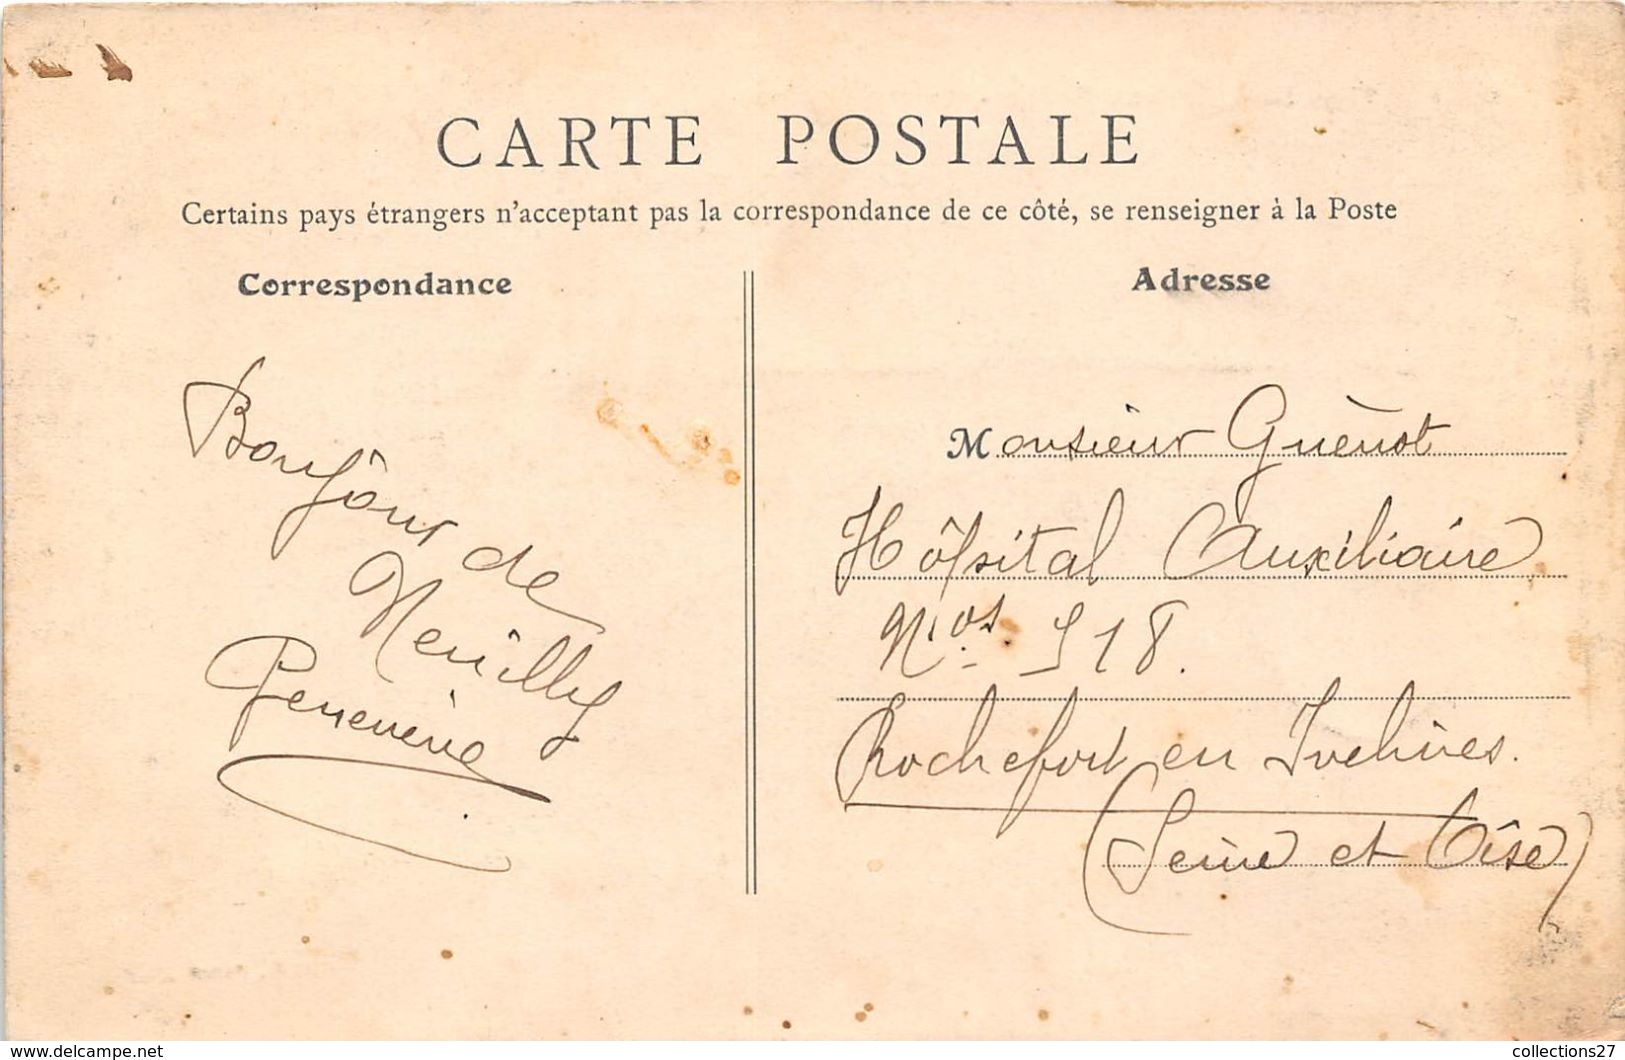 CARTE POSTALE
Certains pays étrangers n'acceptant pas la correspondance de ce côté, se renseigner à la Poste
Correspondance
Bonjour de
Neuilly
Geneviève
Adresse
Monsieur Guènot
Hôpital Auxiliaire
Nos. 318.
Rochefort en Yvelines.
(Seine et Oise)
www.delcampe.net
collections27